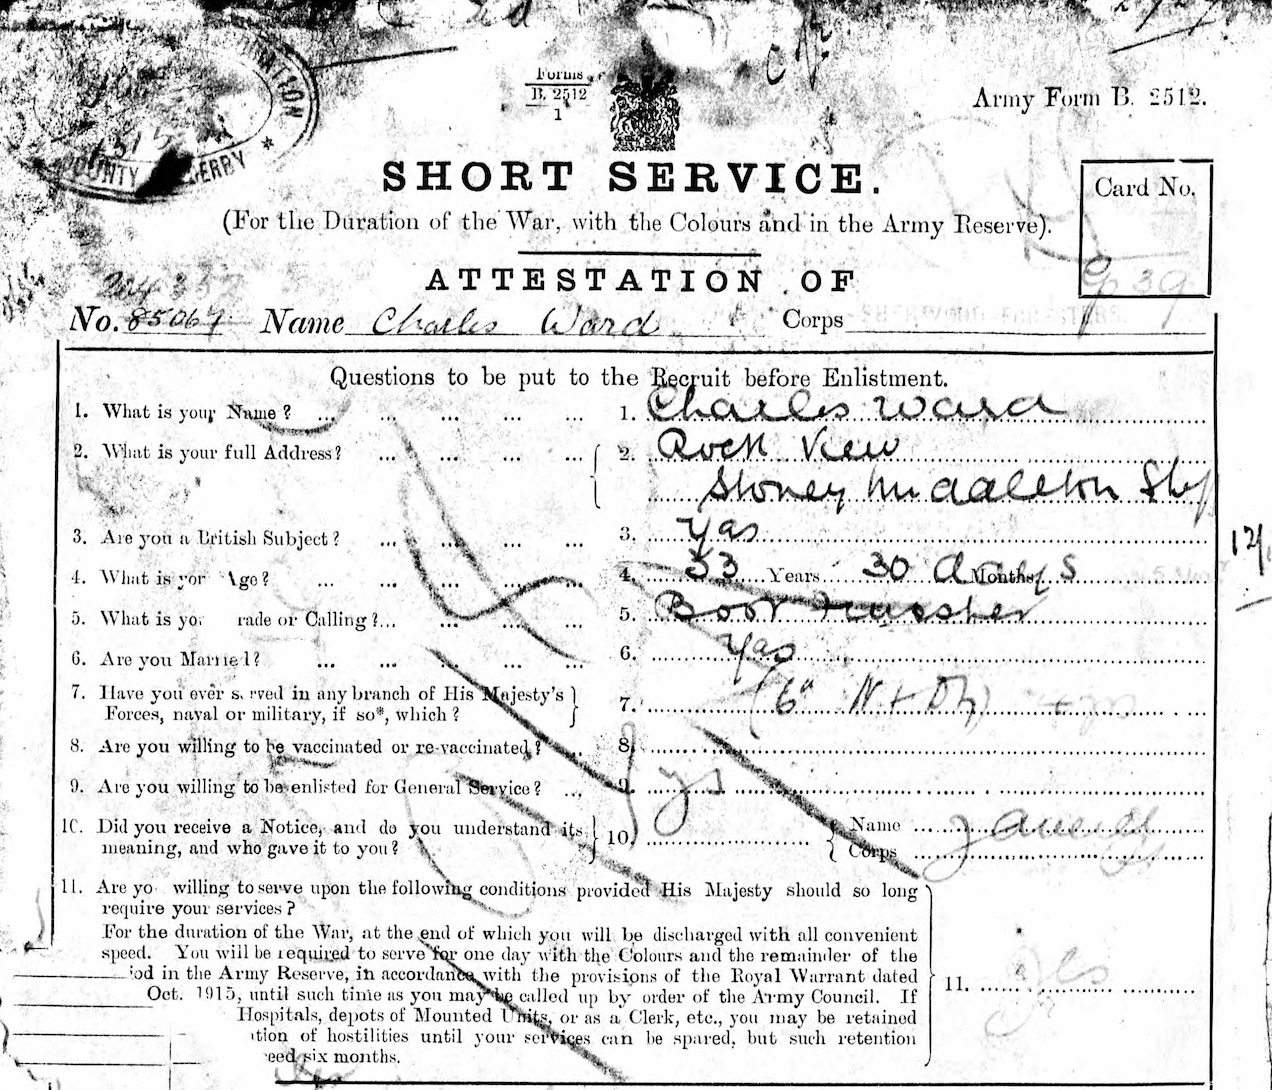 Forms
B. 2512
1
Army Form B. 2512.
COUNTY
SHORT SERVICE.
Card No.
(For the Duration of the War, with the Colours and in the Army Reserve).
ATTESTATION OF
No. 85067 Name Charles Ward Corps SHERWOOD FORESTERS.
Questions to be put to the Recruit before Enlistment.
1. What is your Name? ... ... ... ... ... 1. Charles Ward
2. What is your full Address? ... ... ... ... 2. Rock View
Stoney Middleton
3. Are you a British Subject? ... ... ... ... 3. Yas
4. What is yor Age? ... ... ... ... ... 4. 33 Years 30 days Months
5. What is yo rade or Calling?... ... ... ... 5. Boot
6. Are you Married? ... ... ... ... ... 6. Yas
7. Have you ever served in any branch of His Majesty's
Forces, naval or military, if so*, which? 7. (6th N + Dy)
8. Are you willing to be vaccinated or re-vaccinated? 8.
9. Are you willing to be enlisted for General Service? ... 9. ys
10. Did you receive a Notice, and do you understand its
meaning, and who gave it to you? 10. Name
Corps
11. Are yo willing to serve upon the following conditions provided His Majesty should so long
require your services?
For the duration of the War, at the end of which you will be discharged with all convenient
speed. You will be required to serve for one day with the Colours and the remainder of the
iod in the Army Reserve, in accordance with the provisions of the Royal Warrant dated
Oct. 1915, until such time as you may be called up by order of the Army Council. If
Hospitals, depots of Mounted Units, or as a Clerk, etc., you may be retained
tion of hostilities until your services can be spared, but such retention
eed six months.
11. yes